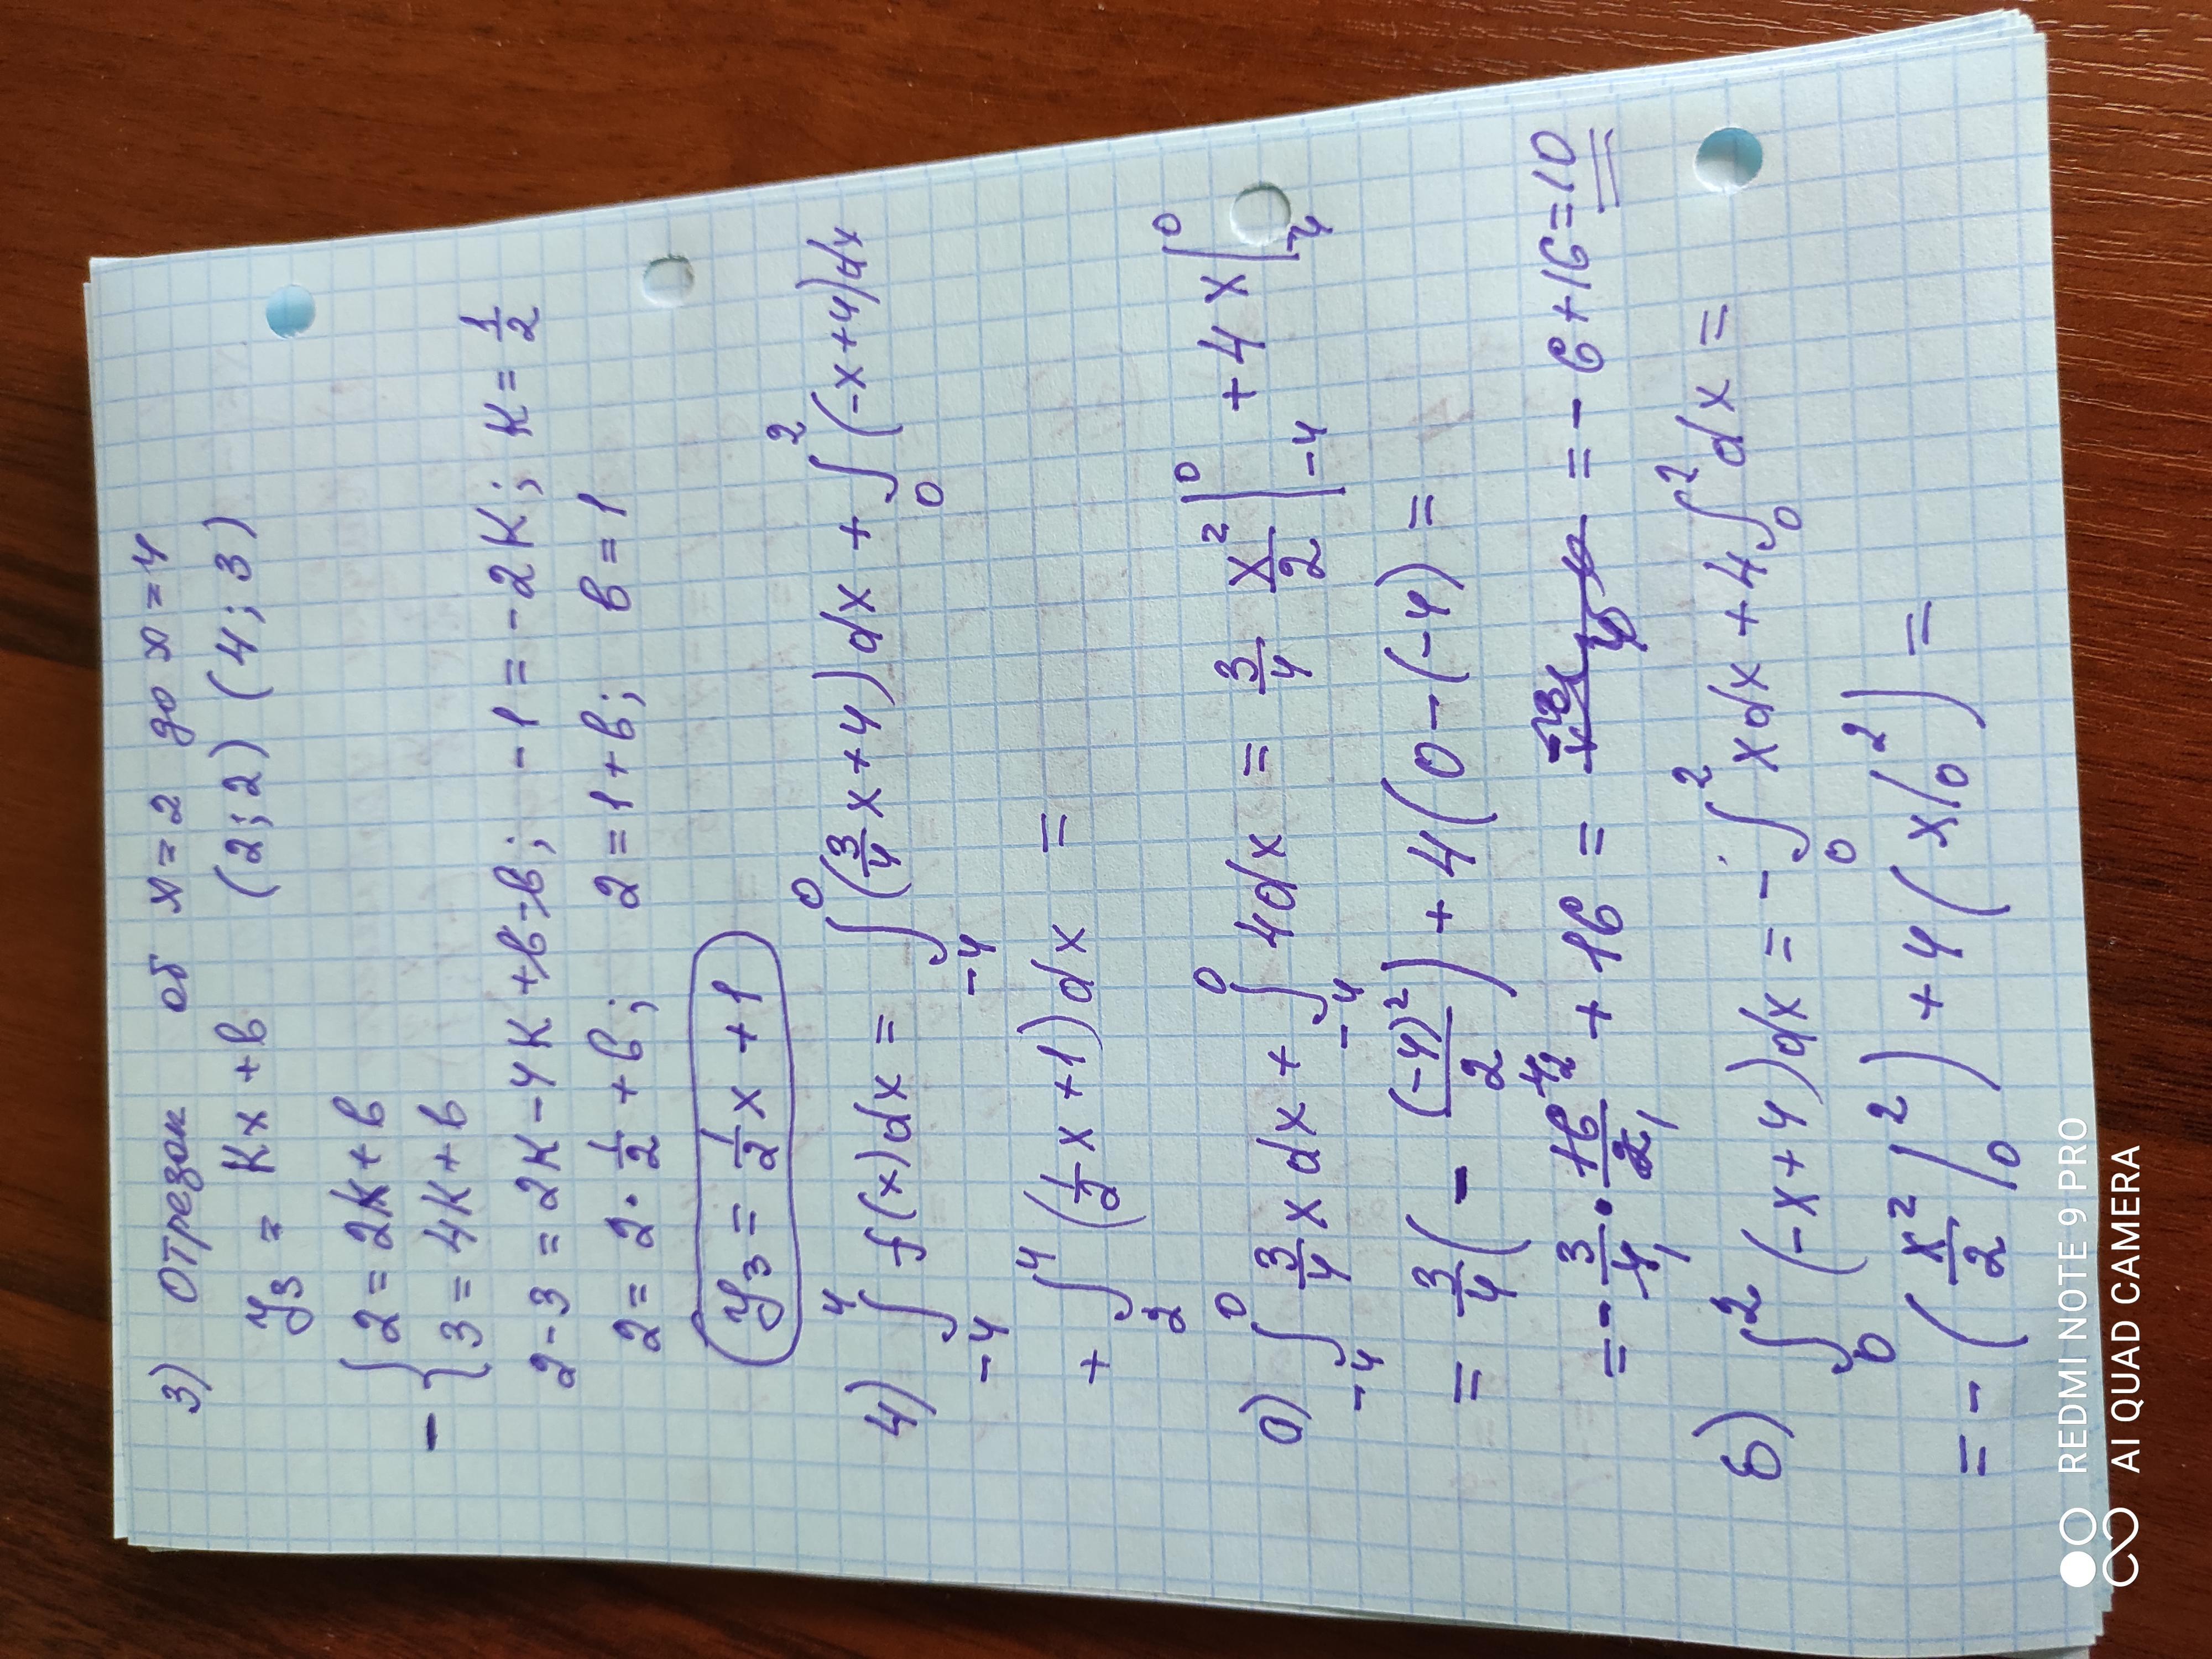 3) Отрезок от x=2 до x=4
y₃ = Kx+b (2;2) (4;3)
{2=2K+b
-{3=4K+b
2-3=2K-4K+b-b; -1=-2K; K=1/2
2=2·1/2+b; 2=1+b; b=1
y₃=1/2x+1
4) ∫₋₄⁴ f(x)dx = ∫₋₄⁰ (3/4x+4)dx + ∫₀² (-x+4)dx
+ ∫₂⁴ (1/2x+1)dx =
a) ∫₋₄⁰ 3/4xdx + ∫₋₄⁰ 4dx = 3/4 x²/2|₋₄⁰ + 4x|₋₄⁰
= 3/4(-(-4)²/2) + 4(0-(-4) =
=-3/4·16/2 + 16 = = -6+16=10
б) ∫₀² (-x+4)dx = -∫₀² xdx + 4∫₀² dx =
= -(x²/2|₀²) + 4(x|₀²) =
REDMI NOTE 9 PRO
AI QUAD CAMERA